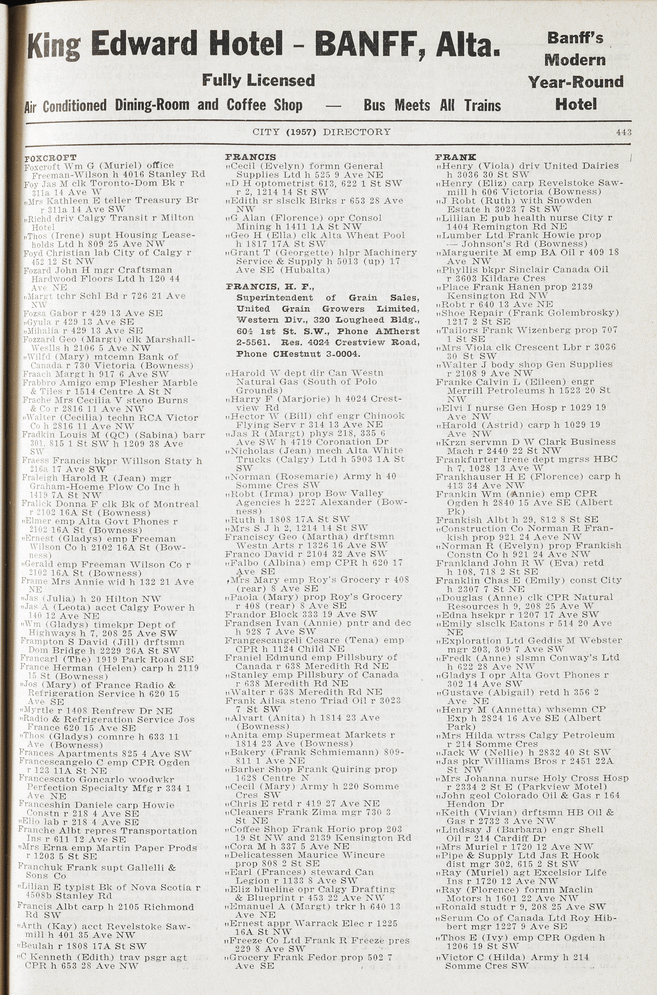 King Edward Hotel - BANFF, Alta.
Fully Licensed
Air Conditioned Dining-Room and Coffee Shop — Bus Meets All Trains
Banff's
Modern
Year-Round
Hotel
CITY (1957) DIRECTORY
443
FOXCROFT
Foxcroft Wm G (Muriel) office
Freeman-Wilson h 4016 Stanley Rd
Foy Jas M clk Toronto-Dom Bk r
311a 14 Ave W
„Mrs Kathleen E teller Treasury Br
r 311a 14 Ave SW
„Richd driv Calgy Transit r Milton
Hotel
„Thos (Irene) supt Housing Lease-
holds Ltd h 809 25 Ave NW
Foyd Christian lab City of Calgy r
452 12 St NW
Fozard John H mgr Craftsman
Hardwood Floors Ltd h 120 44
Ave NE
„Margt tchr Schl Bd r 726 21 Ave
NW
Fozsa Gabor r 429 13 Ave SE
„Gyula r 429 13 Ave SE
„Mihalia r 429 13 Ave SE
Fozzard Geo (Margt) clk Marshall-
Wells h 2106 5 Ave NW
„Wilfd (Mary) mtcemn Bank of
Canada r 730 Victoria (Bowness)
Fraach Margt h 917 6 Ave SW
Frabbro Amigo emp Flesher Marble
& Tiles r 1514 Centre A St N
Frache Mrs Cecilia V steno Burns
& Co r 2816 11 Ave NW
„Walter (Cecilia) techn RCA Victor
Co h 2816 11 Ave NW
Fradkin Louis M (QC) (Sabina) barr
301, 815 1 St SW h 1209 38 Ave
SW
Fraess Francis bkpr Willson Staty h
216a 17 Ave SW
Fraleigh Harold R (Jean) mgr
Graham-Hoeme Plow Co Inc h
1419 7A St NW
Fralick Donna F clk Bk of Montreal
r 2102 16A St (Bowness)
„Elmer emp Alta Govt Phones r
2102 16A St (Bowness)
„Ernest (Gladys) emp Freeman
Wilson Co h 2102 16A St (Bow-
ness)
„Gerald emp Freeman Wilson Co r
2102 16A St (Bowness)
Frame Mrs Annie wid h 132 21 Ave
NE
„Jas (Julia) h 20 Hilton NW
„Jas A (Leota) acct Calgy Power h
140 12 Ave NE
„Wm (Gladys) timekpr Dept of
Highways h 7, 208 25 Ave SW
Frampton S David (Jill) drftsmn
Dom Bridge h 2229 26A St SW
Francarl (The) 1919 Park Road SE
France Herman (Helen) carp h 2119
15 St (Bowness)
„Jos (Mary) of France Radio &
Refrigeration Service h 620 15
Ave SE
„Myrtle r 1408 Renfrew Dr NE
„Radio & Refrigeration Service Jos
France 620 15 Ave SE
„Thos (Gladys) comnre h 633 11
Ave (Bowness)
Frances Apartments 825 4 Ave SW
Francescangelo C emp CPR Ogden
r 123 11A St NE
Francescato Goncarlo woodwkr
Perfection Specialty Mfg r 334 1
Ave NE
Franceshin Daniele carp Howie
Constn r 218 4 Ave SE
„Elio lab r 218 4 Ave SE
Franche Albt repres Transportation
Ins r 611 12 Ave SE
„Mrs Erna emp Martin Paper Prods
r 1203 5 St SE
Franchuk Frank supt Gallelli &
Sons Co
„Lilian E typist Bk of Nova Scotia r
4508b Stanley Rd
Francis Albt carp h 2105 Richmond
Rd SW
„Arth (Kay) acct Revelstoke Saw-
mill h 401 35 Ave NW
„Beulah r 1808 17A St SW
„C Kenneth (Edith) trav psgr agt
CPR h 653 28 Ave NW
FRANCIS
„Cecil (Evelyn) formn General
Supplies Ltd h 525 9 Ave NE
„D H optometrist 613, 622 1 St SW
r 2, 1214 14 St SW
„Edith sr slsclk Birks r 653 28 Ave
NW
„G Alan (Florence) opr Consol
Mining h 1411 1A St NW
„Geo H (Ella) clk Alta Wheat Pool
h 1817 17A St SW
„Grant T (Georgette) hlpr Machinery
Service & Supply h 5013 (up) 17
Ave SE (Hubalta)
FRANCIS, H. F.,
Superintendent of Grain Sales,
United Grain Growers Limited,
Western Div., 320 Lougheed Bldg.,
604 1st St. S.W., Phone AMherst
2-5561. Res. 4024 Crestview Road,
Phone CHestnut 3-0004.
„Harold W dept dir Can Westn
Natural Gas (South of Polo
Grounds)
„Harry F (Marjorie) h 4024 Crest-
view Rd
„Hector W (Bill) chf engr Chinook
Flying Serv r 314 13 Ave NE
„Jas R (Margt) phys 218, 335 6
Ave SW h 4719 Coronation Dr
„Nicholas (Jean) mech Alta White
Trucks (Calgy) Ltd h 5903 1A St
SW
„Norman (Rosemarie) Army h 40
Somme Cres SW
„Robt (Irma) prop Bow Valley
Agencies h 2227 Alexander (Bow-
ness)
„Ruth h 1808 17A St SW
„Mrs S J h 2, 1214 14 St SW
Franciscy Geo (Martha) drftsmn
Westn Arts r 1326 16 Ave SW
Franco David r 2104 32 Ave SW
„Falbo (Albina) emp CPR h 620 17
Ave SE
„Mrs Mary emp Roy's Grocery r 408
(rear) 8 Ave SE
„Paola (Mary) prop Roy's Grocery
r 408 (rear) 8 Ave SE
Frandor Block 333 19 Ave SW
Frandsen Ivan (Annie) pntr and dec
h 928 7 Ave SW
Frangescangeli Cesare (Tena) emp
CPR h 1124 Child NE
Franiel Edmund emp Pillsbury of
Canada r 638 Meredith Rd NE
„Stanley emp Pillsbury of Canada
r 638 Meredith Rd NE
„Walter r 638 Meredith Rd NE
Frank Ailsa steno Triad Oil r 3023
7 St SW
„Alvart (Anita) h 1814 23 Ave
(Bowness)
„Anita emp Supermeat Markets r
1814 23 Ave (Bowness)
„Bakery (Frank Schniemann) 809-
811 1 Ave NE
„Barber Shop Frank Quiring prop
1628 Centre N
„Cecil (Mary) Army h 220 Somme
Cres SW
„Chris E retd r 419 27 Ave NE
„Cleaners Frank Zima mgr 730 3
St NE
„Coffee Shop Frank Horio prop 203
19 St NW and 2139 Kensington Rd
„Cora M h 337 5 Ave NE
„Delicatessen Maurice Wincure
prop 808 2 St SE
„Earl (Frances) steward Can
Legion r 1133 8 Ave SW
„Eliz blueline opr Calgy Drafting
& Blueprint r 453 22 Ave NW
„Emanuel A (Margt) trk h 640 13
Ave NE
„Ernest appr Warrack Elec r 1225
16A St NW
„Freeze Co Ltd Frank R Freeze pres
229 8 Ave SW
„Grocery Frank Fedor prop 502 7
Ave SE
FRANK
„Henry (Viola) driv United Dairies
h 3036 30 St SW
„Henry (Eliz) carp Revelstoke Saw-
mill h 606 Victoria (Bowness)
„J Robt (Ruth) with Snowden
Estate h 3023 7 St SW
„Lillian E pub health nurse City r
1404 Remington Rd NE
„Lumber Ltd Frank Howie prop
— Johnson's Rd (Bowness)
„Marguerite M emp BA Oil r 409 18
Ave NW
„Phyllis bkpr Sinclair Canada Oil
r 3603 Kildare Cres
„Place Frank Hanen prop 2139
Kensington Rd NW
„Robt r 640 13 Ave NE
„Shoe Repair (Frank Golembrosky)
1217 2 St SE
„Tailors Frank Wizenberg prop 707
1 St SE
„Mrs Viola clk Crescent Lbr r 3036
30 St SW
„Walter J body shop Gen Supplies
r 2108 9 Ave NW
Franke Calvin L (Eileen) engr
Merrill Petroleums h 1523 20 St
NW
„Elvi I nurse Gen Hosp r 1029 19
Ave NW
„Harold (Astrid) carp h 1029 19
Ave NW
„Krzn servmn D W Clark Business
Mach r 2440 22 St NW
Frankfurter Irene dept mgrss HBC
h 7, 1028 13 Ave W
Frankhauser H E (Florence) carp h
413 34 Ave NW
Frankin Wm (Annie) emp CPR
Ogden h 2840 15 Ave SE (Albert
Pk)
Frankish Albt h 29, 812 8 St SE
„Construction Co Norman R Fran-
kish prop 921 24 Aeve NW
„Norman R (Evelyn) prop Frankish
Constn Co h 921 24 Ave NW
Frankland John R W (Eva) retd
h 108, 718 2 St SE
Franklin Chas E (Emily) const City
h 2307 7 St NE
„Douglas (Anne) clk CPR Natural
Resources h 9, 208 25 Ave W
„Edna hsekpr r 1207 17 Ave SW
„Emily slsclk Eatons r 514 20 Ave
NE
„Exploration Ltd Geddis M Webster
mgr 203, 309 7 Ave SW
„Fredk (Anne) slsmn Conway's Ltd
h 622 28 Ave NW
„Gladys I opr Alta Govt Phones r
302 14 Ave SW
„Gustave (Abigail) retd h 356 2
Ave NE
„Henry M (Annetta) whsemn CP
Exp h 2824 16 Ave SE (Albert
Park)
„Mrs Hilda wtrss Calgy Petroleum
r 214 Somme Cres
„Jack W (Nellie) h 2832 40 St SW
„Jas pkr Williams Bros r 2451 22A
St NW
„Mrs Johanna nurse Holy Cross Hosp
r 2334 2 St E (Parkview Motel)
„John geol Colorado Oil & Gas r 164
Hendon Dr
„Keith (Vivian) drftsmn HB Oil &
Gas r 2732 3 Ave NW
„Lindsay J (Barbara) engr Shell
Oil r 214 Cardiff Dr
„Mrs Muriel r 1720 12 Ave NW
„Pipe & Supply Ltd Jas R Hook
dist mgr 302, 615 2 St SW
„Ray (Muriel) agt Excelsior Life
Ins r 1720 12 Ave NW
„Ray (Florence) formn Maclin
Motors h 1601 22 Ave NW
„Ronald studt r 9, 208 25 Ave SW
„Serum Co of Canada Ltd Roy Hib-
bert mgr 1227 9 Ave SE
„Thos E (Ivy) emp CPR Ogden h
1206 19 St SW
„Victor C (Hilda) Army h 214
Somme Cres SW